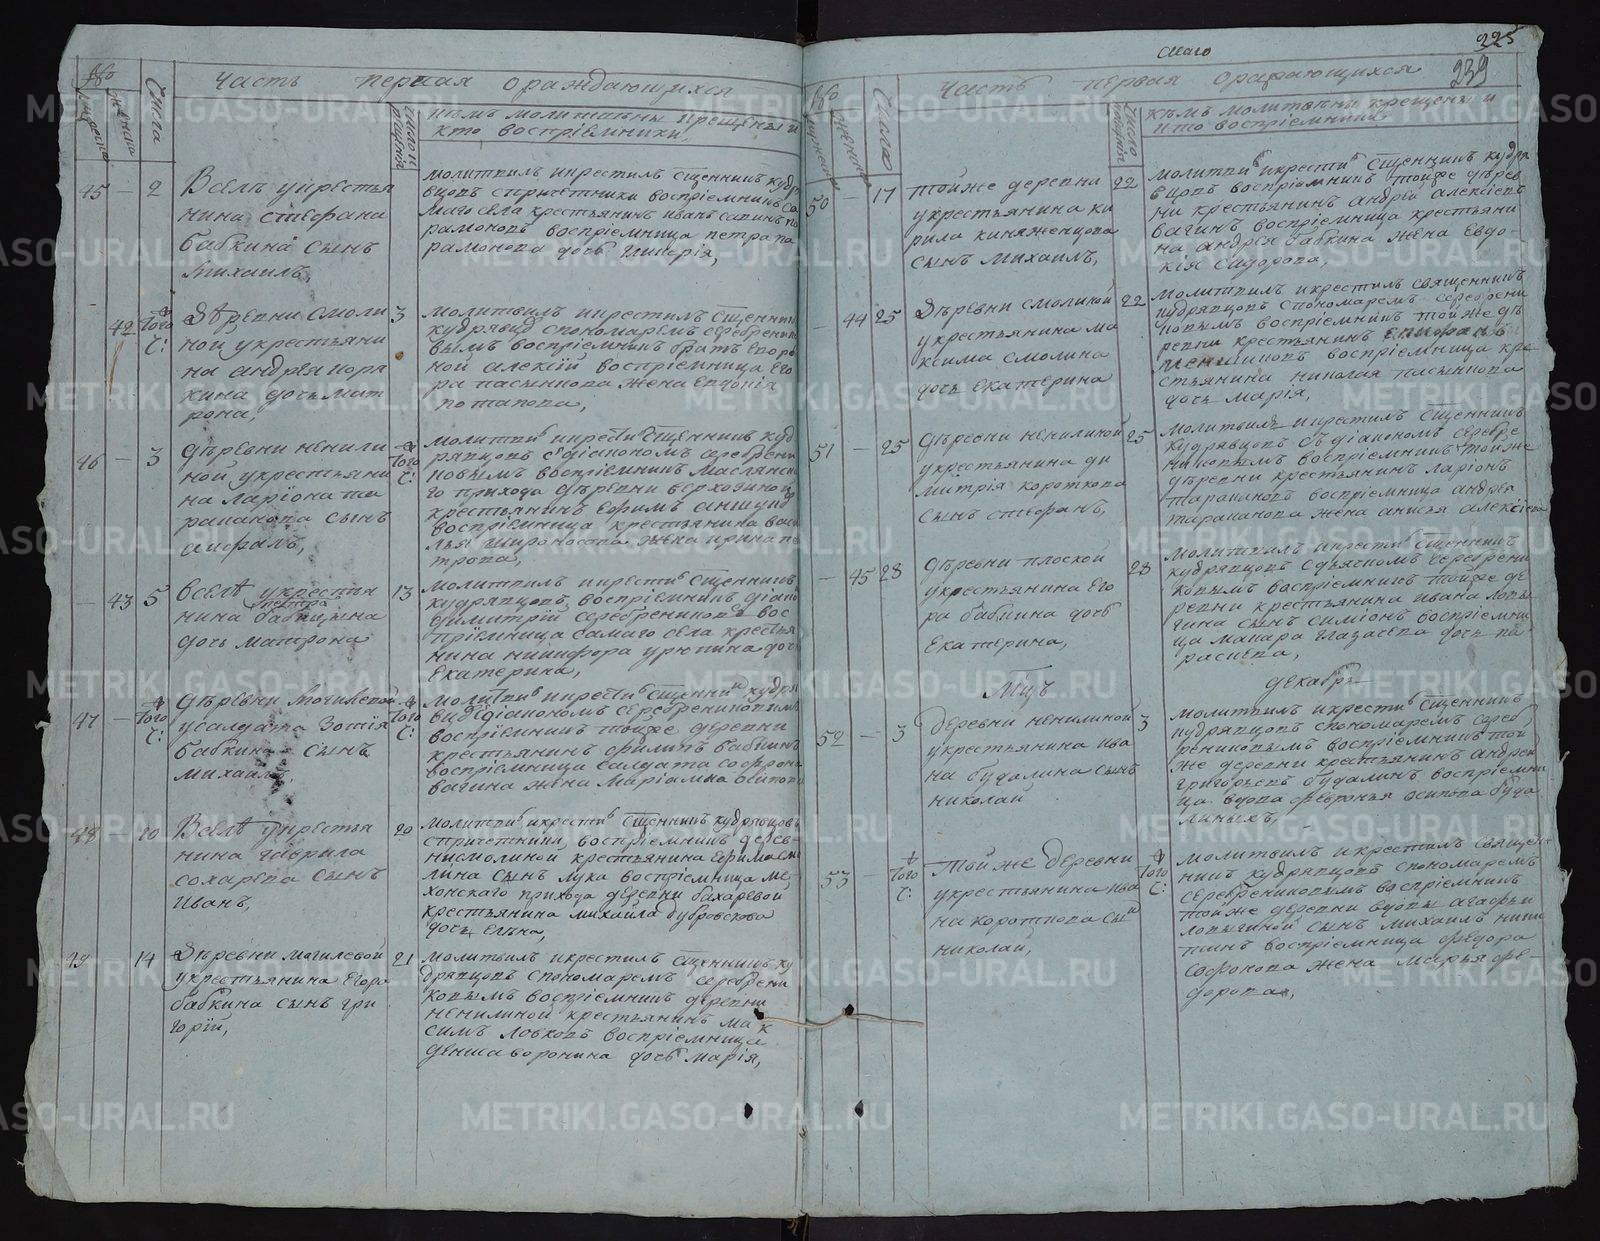 Часть первая о раждающихся
№
мужеска
женска
Числа
число крещенія
кѣмъ молитвены и крещены и
кто воспріемники,
45 — 2
Вселѣ укрестья
нина стефана
бабкина сынъ
михаилъ,
молитвилъ икрестилъ сщенникъ кудря
вцовъ спричетники воспріемникъ са
маго села крестьянинъ иванъ
парамоновъ воспріемница петра па
рамонова дочь гликерія,
42 того ч:
Дѣревни смоли
ной укрестьяни
на андрея
дочь мат
рона,
3
молитвилъ икрестилъ сщенникъ
кудрявцо спономаремъ серебренико
вымъ воспріемникъ братъ
алексій воспріемница его
ра пасынкова жена евдокія
потапова,
46 — 3
дѣревни ненили
ной укрестьяни
на ларіона та
раканова сынъ
того ч:
молитви икрести сщенникъ куд
рявцовъ сдіакономъ серебрени
ковымъ воспріемникъ маслянска
го прихода дѣревни верходиной
крестьянинъ ефимъ
воспріемница крестьянина васи
лья широносова жена ирина пе
трова,
— 43 5
Вселѣ укрестья
нина петра
бабкина
дочь матрона
13
молитвилъ икрести сщенникъ
кудрявцовъ воспріемникъ діако
димитрій серебрениковъ вос
пріемница самаго села крестья
нина никифора урюпина дочь
екатерина,
47 — того ч:
дѣревни могилевой
усалдата зотія
бабкина сынъ
михаилъ,
того ч:
молитви икрести сщенни кудря
вцо сдіакономъ серебрениковымъ
воспріемникъ тойже деревни
крестьянинъ филипъ бабкинъ
воспріемница салдата софрона
вагина жена маріамна
48 — 10
Вселѣ укрестья
нина гаврила
сохарева сынъ
иванъ,
20
молитви икрести сщенникъ кудрявцовъ
спричетники, воспріемникъ дерев-
ни смолиной крестьянина ефима смо
лина сынъ лука воспріемница ме-
хонскаго прихода деревни бахаревой
крестьянина михайла дубровскова
дочь елѣна,
49 14
Дѣревни могилевой
укрестьянина егора
бабкина сынъ гри
горій,
21
молитвилъ икрестилъ сщенникъ ку
дрявцовъ спономаремъ серебрени
ковымъ воспріемникъ деревни
ненилиной крестьянинъ мак
симъ ловковъ воспріемница
дениса воронина дочь марія,
225
239
Часть первая о раждающихся
№
мужеска
женска
Числа
число крещенія
кѣмъ молитвены крещены и
кто воспріемники,
50 — 17
тойже деревни
укрестьянина ки
рила княженцова
сынъ михаилъ,
22
молитви икрести сщенникъ кудря
вцовъ воспріемникъ тойже дѣрев
ни крестьянинъ андрей алексѣевъ
вагинъ воспріемница крестьяни
на андрея бабкина жена евдо-
кія сидорова,
44 25
Дѣревни смолиной
укрестьянина ма
ксима смолина
дочь екатерина
22
молитвилъ икрестилъ священникъ
кудрявцовъ спономаремъ серебрени
ковымъ воспріемникъ тойже дѣ
ревни крестьянинъ
меншиковъ воспріемница кре
стьянина николая пасынкова
дочь марія,
51 — 25
дѣревни ненилиной
укрестьянина ди
митрія короткова
сынъ стефанъ,
25
молитвилъ икрестилъ сщенникъ
кудрявцовъ съ діакономъ серебре
никовымъ воспріемникъ тойже
дѣревни крестьянинъ ларіонъ
таракановъ воспріемница андрея
тараканова жена анисья алексіева
— 45 28
дѣревни плоской
укрестьянина его
ра бабкина дочь
екатерина,
28
молитвилъ икрести сщенникъ
кудрявцовъ сдьякомъ серебрени
ковымъ воспріемникъ тойже де
ревни крестьянина ивана лопы
гина сынъ симіонъ воспріемни
ца макара глазачева дочь па
раскева,
Мцъ декабрь
52 — 3
Деревни ненилиной
укрестьянина ива
на будалина сынъ
николай
3
молитвилъ икрести сщенникъ
кудрявцовъ спономаремъ сереб
рениковымъ воспріемникъ той
же деревни крестьянинъ андрей
григорьевъ будалинъ воспріемни
ца вдова февронья осипова буда
линыхъ,
53 — того ч:
Тойже деревни
укрестьянина ива
на короткова сы
николай,
того ч:
молитвилъ икрестилъ священ-
никъ кудрявцовъ спономаремъ
серебрениковымъ воспріемникъ
тойже деревни вдовы агафьи
лопыгиной сынъ михаилъ ники
тинъ воспріемница федора
софонова жена марья фе-
дорова,
METRIKI.GASO-URAL.RU